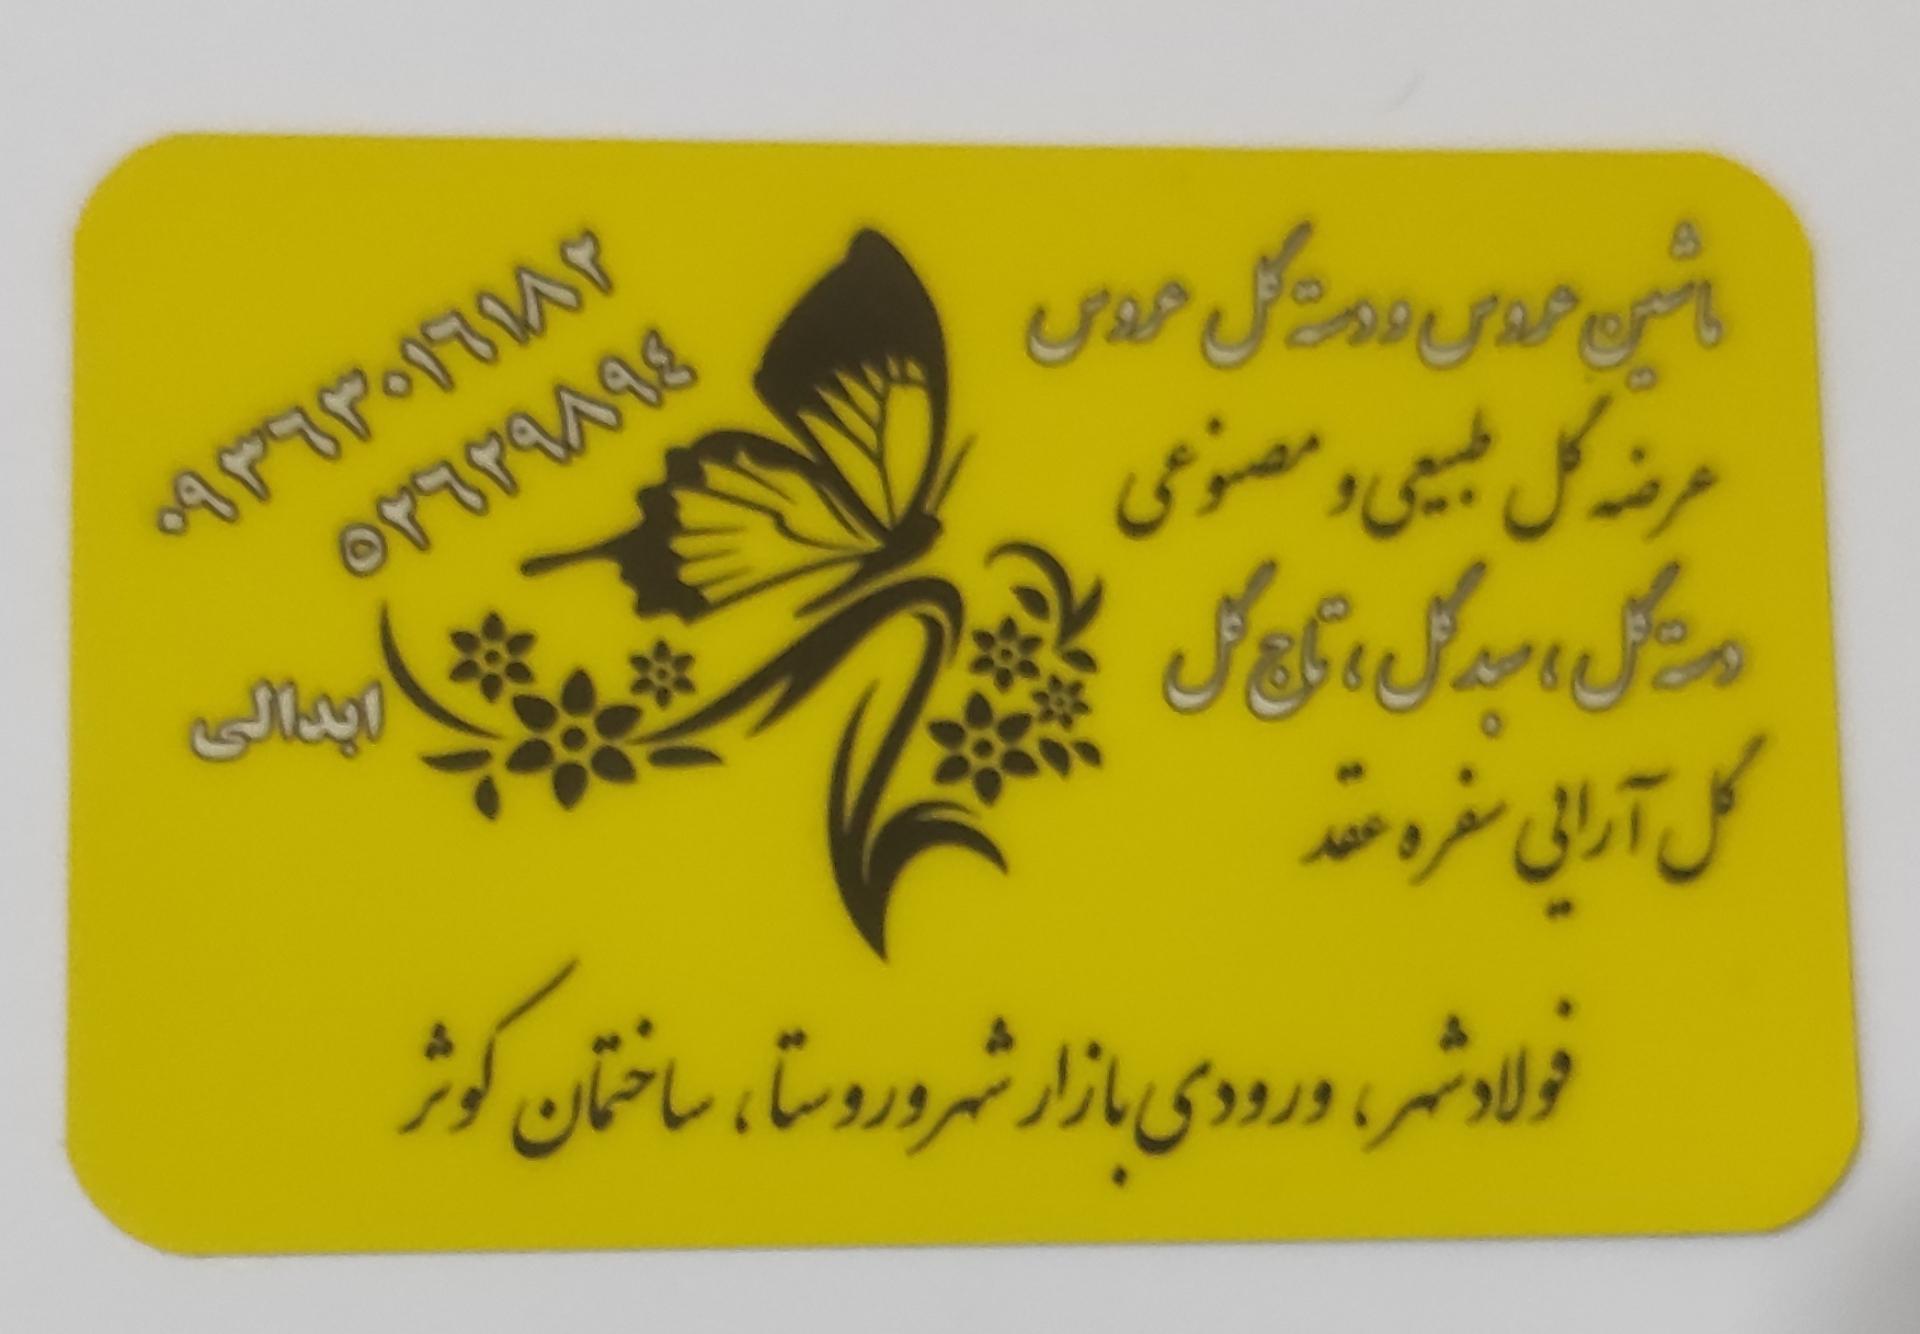 ماشین عروس و دسته گل عروس
عرضه گل طبیعی و مصنوعی
دسته گل، سبد گل، تاج گل
گل آرایی سفره عقد
۰۹۳۶۳۰۱۶۱۸۲
۵۲۶۲۹۸۹٤
ابدالی
فولادشهر، ورودی بازار شهر و روستا، ساختمان کوثر